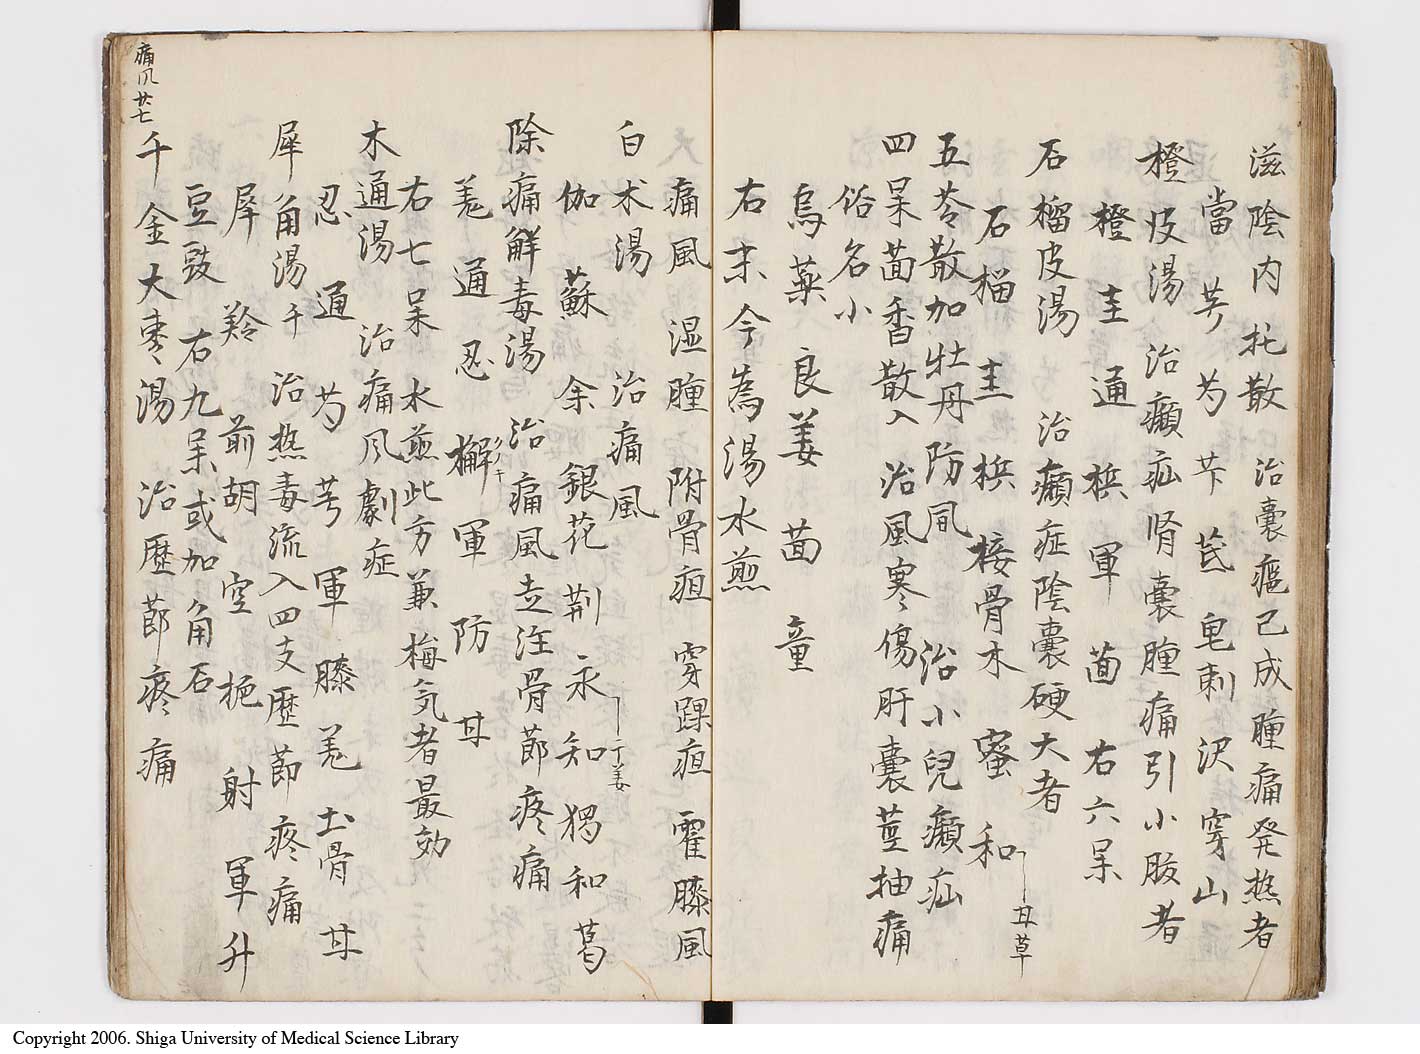 滋陰内托散 治囊癰已成腫痛発热者
當 芎 芍 苄 芪 皂刺 沢 穿山
橙皮湯 治癲疝肾囊腫痛引小股者
橙 圭 通 梹 軍 茴 右六呆
石榴皮湯 治癲症陰囊硬大者
石榴 圭 梹 接骨木 蜜 和
甘草
五苓散加牡丹防風 治小兒癲疝
四呆茴香散入 治風寒傷肝囊莖抽痛
俗名小
烏薬 良姜 茴 童
右末今為湯水煎
痛風 湿腫 附骨疽 穿踝疽 霍膝風
白朮湯 治痛風
丁姜
伽 蘇 余 銀花 荊 永 知 獨 和 葛
除痛觧毒湯 治痛風走注骨莭疼痛
羗 通 忍 檞 軍 防 甘
右七呆水煎此方兼梅気者最効
木通湯 治痛风劇症
忍 通 芍 芎 軍 膝 羗 土骨 甘
犀角湯千 治热毒流入四支歴莭疼痛
犀 羚 前胡 空 栀 射 軍 升
豆豉 右九呆或加角石
千金大枣湯 治歴莭疼痛
痛风 廿七